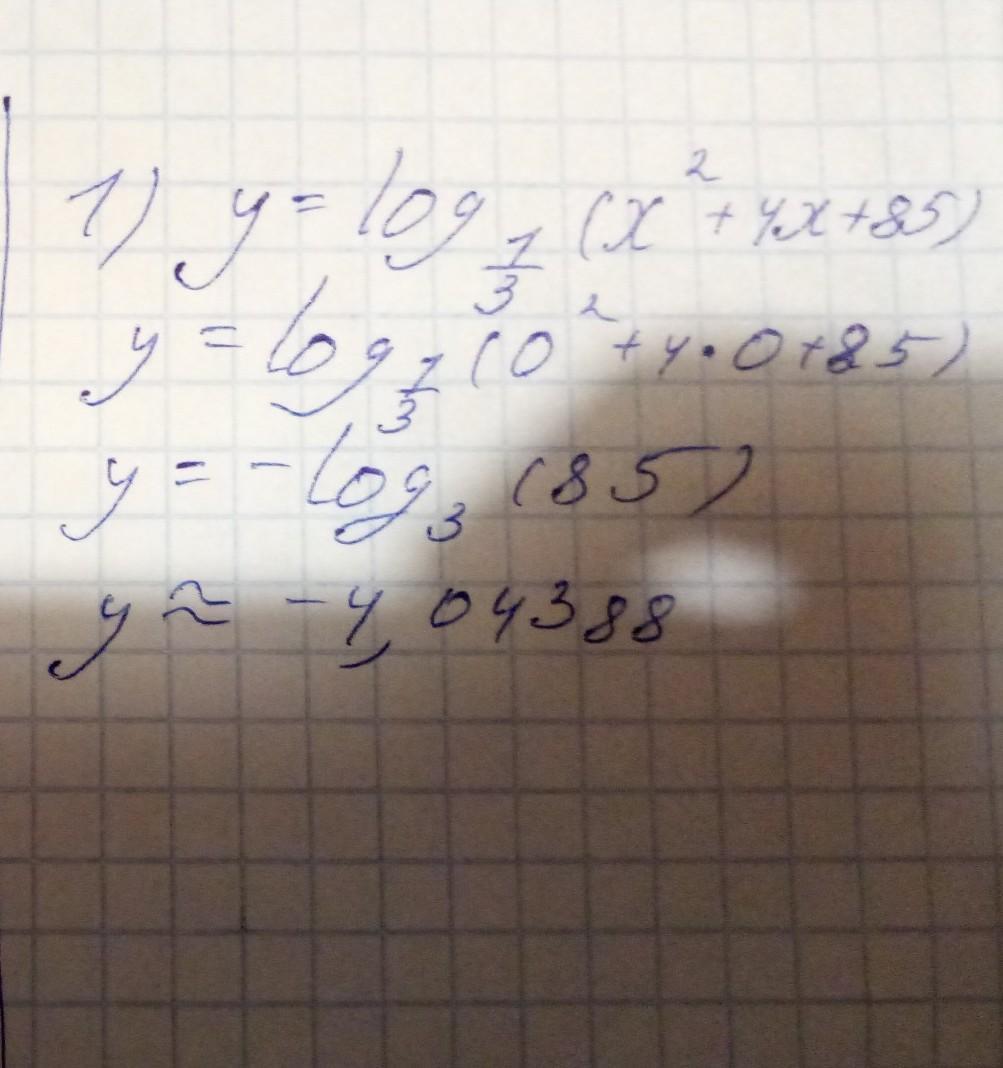 1) y = log_{1/3} (x² + 4x + 85)
y = log_{1/3} (0² + 4 • 0 + 85)
y = -log₃ (85)
y ≈ -4,04388